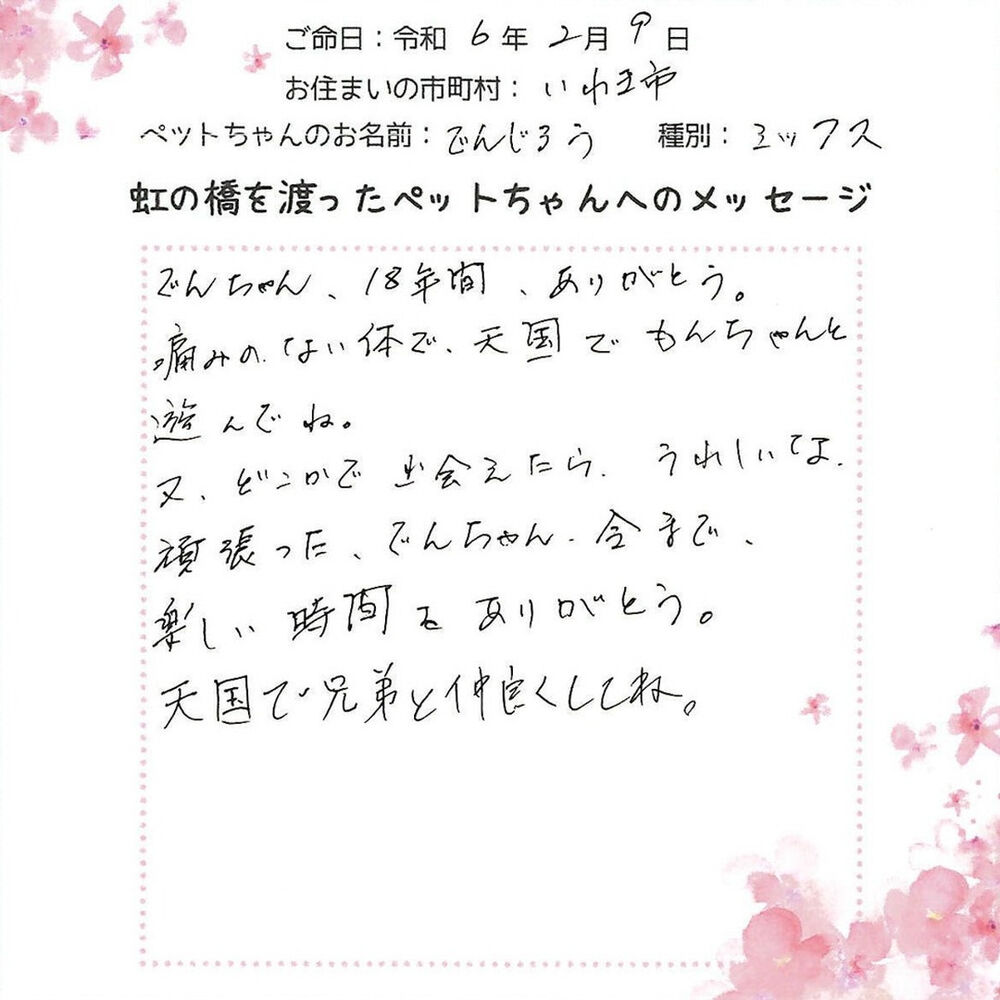 ご命日：令和 6 年 2 月 9 日
お住まいの市町村：いわき市
ペットちゃんのお名前：でんじろう 種別：ミックス
虹の橋を渡ったペットちゃんへのメッセージ
でんちゃん、18年間、ありがとう。
痛みのない体で、天国でもんちゃんと
遊んでね。
又、どこかで出会えたら、うれしいなよ.
頑張った、でんちゃん、今まで、
楽しい時間をありがとう。
天国で兄弟と仲良くしてね。